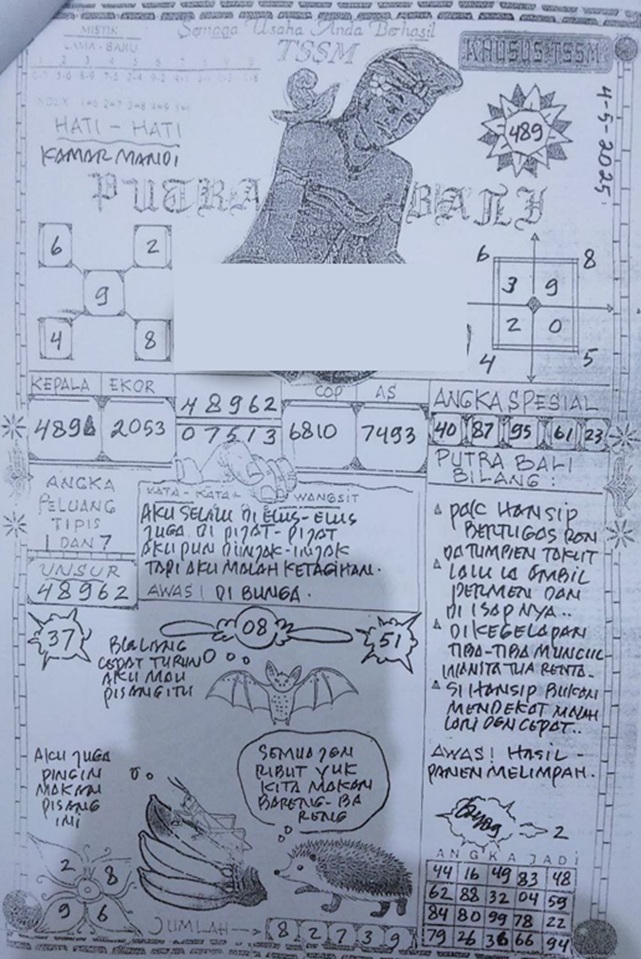 Semoga Usaha Anda Berhasil
TSSM
KHUSUS TSSM
MISTIK
LAMA - BARU
4-5-2025
HATI - HATI
KAMAR MANDI
489
PUTRA BALI
6 2
9
4 8
6 8
3 9
2 0
4 5
KEPALA EKOR
4896 2053
48962
07513
COP AS
6810 7493
ANGKA SPESIAL
40 87 95 61 23
ANGKA
PELUANG
TIPIS
1 DAN 7
UNSUR
48962
KATA - KATA WANGSIT
AKU SELALU DI ELUS-ELUS
JUGA DI PIJAT-PIJAT
AKU PUN DIINJAK-INJAK
TAPI AKU MALAH KETAGIHAN.
AWAS! DI BUNGA.
PUTRA BALI
BILANG:
PAK HANSIP
BERTUGAS RON
DATUMPIEN TAKUT
LALU IA AMBIL
PERMEN DAN
DI ISAPNYA..
DIKEGELAPAN
TIBA-TIBA MUNCUL
WANITA TUA RENTA.
SI HANSIP BUKAN
MENDEKAT MALAH
LARI DEN CEPAT..
AWAS! HASIL -
PANEN MELIMPAH.
37
08
51
BLALANG
CEPAT TURUN
AKU MAU
PISANG ITU
AKU JUGA
PINGIN
MAKAN
PISANG
INI
SEMUA JGN
RIBUT YUK
KITA MAKAN
BARENG-BA
RENG
2 8
9 6
JUMLAH 8 2 7 3 9
2
ANGKA JADI
44 16 49 83 48
62 88 32 04 59
84 80 99 78 22
79 26 36 66 94